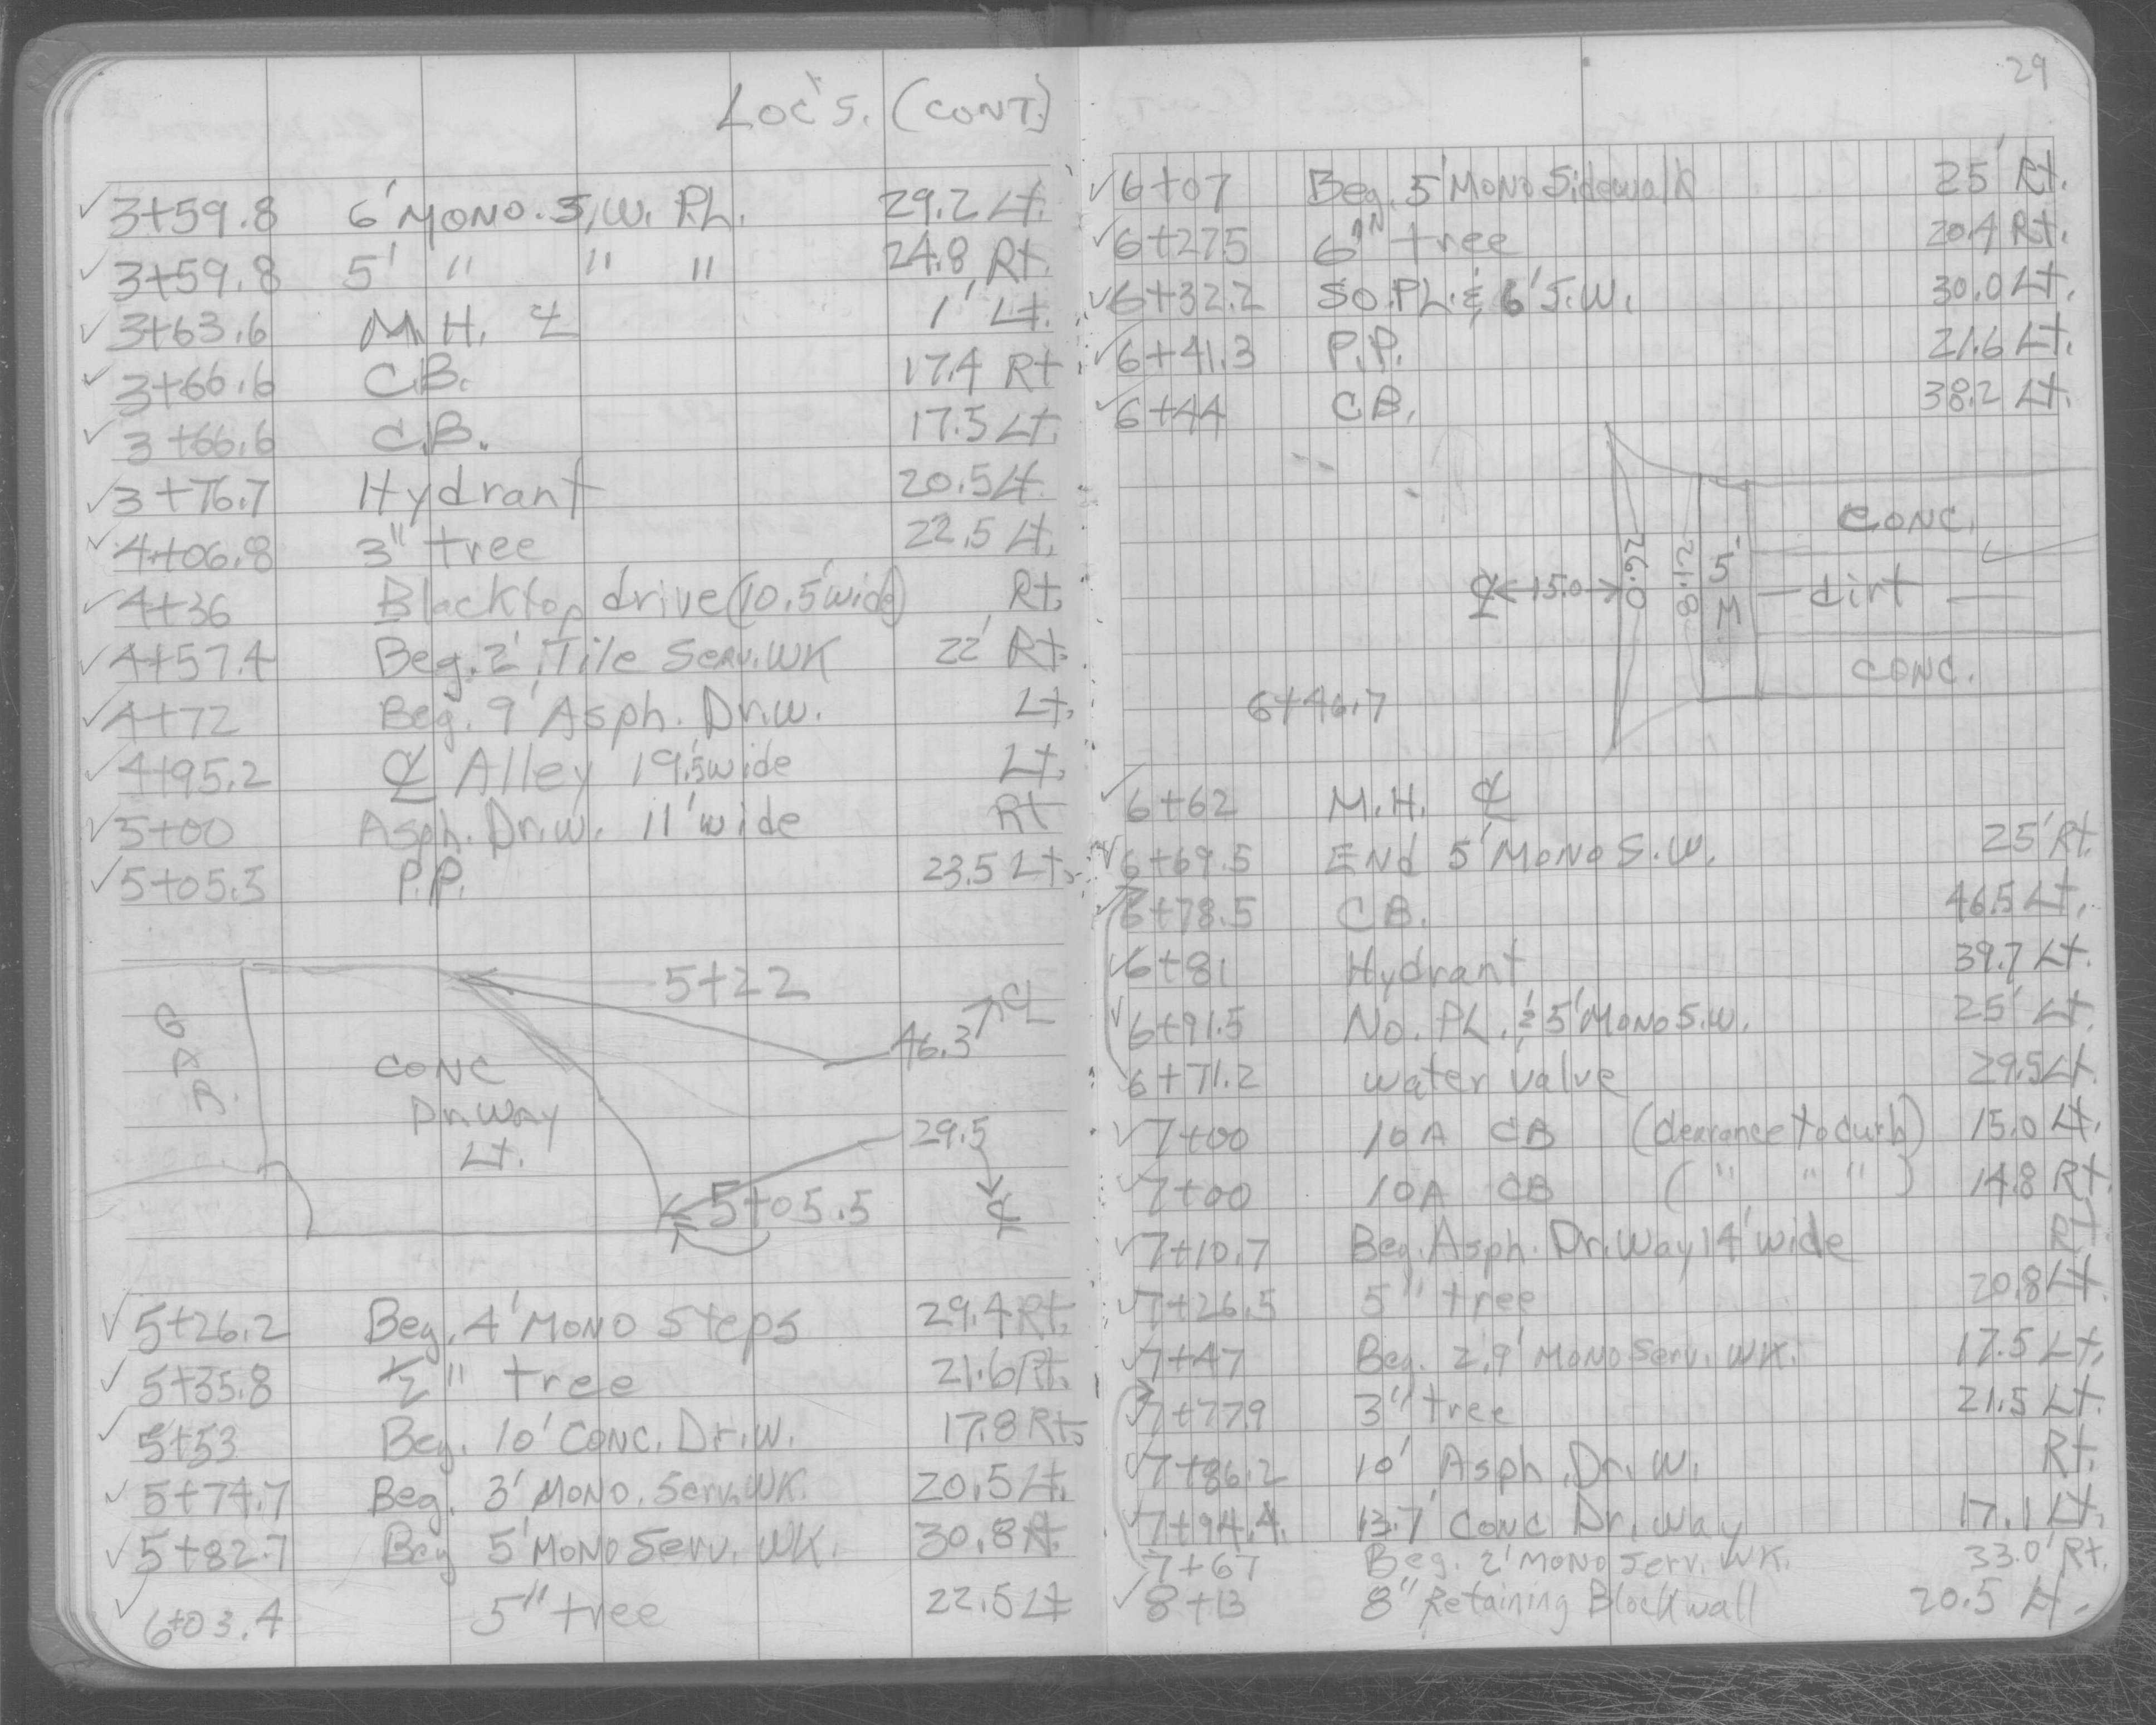 LOC'S. (CONT.)
3+59.8 6' MONO. S.W. P.L. 29.2 Lt.
3+59.8 5' " " " 24.8 Rt.
3+63.6 M.H. ℄ 1' Lt.
3+66.6 C.B. 17.4 Rt
3+66.6 C.B. 17.5 Lt.
3+76.7 Hydrant 20.5 Lt.
4+06.8 3" tree 22.5 Lt.
4+36 Blacktop drive (10.5' wide) Rt.
4+57.4 Beg. 2' Tile Serv. WK 22' Rt.
4+72 Beg. 9' Asph. Dr.w. Lt.
4+95.2 ℄ Alley 19.5' wide Lt.
5+00 Asph. Dr.w. 11' wide Rt
5+05.5 P.P. 23.5 Lt.
5+22
46.3 ℄
GAR.
CONC
Dr.way
Lt.
29.5
5+05.5 ℄
5+26.2 Beg. 4' MONO Steps 29.4 Rt.
5+35.8 ½" tree 21.6 Rt.
5+53 Beg. 10' CONC. Dr.W. 17.8 Rt.
5+74.7 Beg. 3' MONO. Serv. WK. 20.5 Lt.
5+82.7 Beg 5' MONO Serv. WK. 30.8 Rt.
6+03.4 5" tree 22.5 Lt
29
6+07 Beg. 5' MONO Sidewalk 25' Rt.
6+27.5 6" tree 20.4 Rt.
6+32.2 SO. PL. & 6' S.W. 30.0 Lt.
6+41.3 P.P. 21.6 Lt.
6+44 C.B. 38.2 Lt.
CONC.
℄ 15.0 26.0 21.8 5' M dirt
CONC.
6+46.7
6+62 M.H. ℄
6+69.5 END 5' MONO S.W. 25' Rt.
6+78.5 C.B. 46.5 Lt.
6+81 Hydrant 39.7 Lt.
6+91.5 No. PL. & 5' MONO S.W. 25' Lt.
6+71.2 water valve 29.5 Lt.
7+00 10A CB (clearance to curb) 15.0 Lt.
7+00 10A CB ( " " " ) 14.8 Rt.
7+10.7 Beg. Asph. Dr. Way 14' wide Rt.
7+26.5 5" tree 20.8 Lt.
7+47 Beg. 2.9' MONO Serv. WK. 17.5 Lt.
7+77.9 3" tree 21.5 Lt.
7+86.2 10' Asph. Dr. W. Rt.
7+94.4 13.7' CONC Dr. Way 17.1 Lt.
7+67 Beg. 2' MONO Serv. WK. 33.0' Rt.
8+13 8" Retaining Block wall 20.5 Lt.